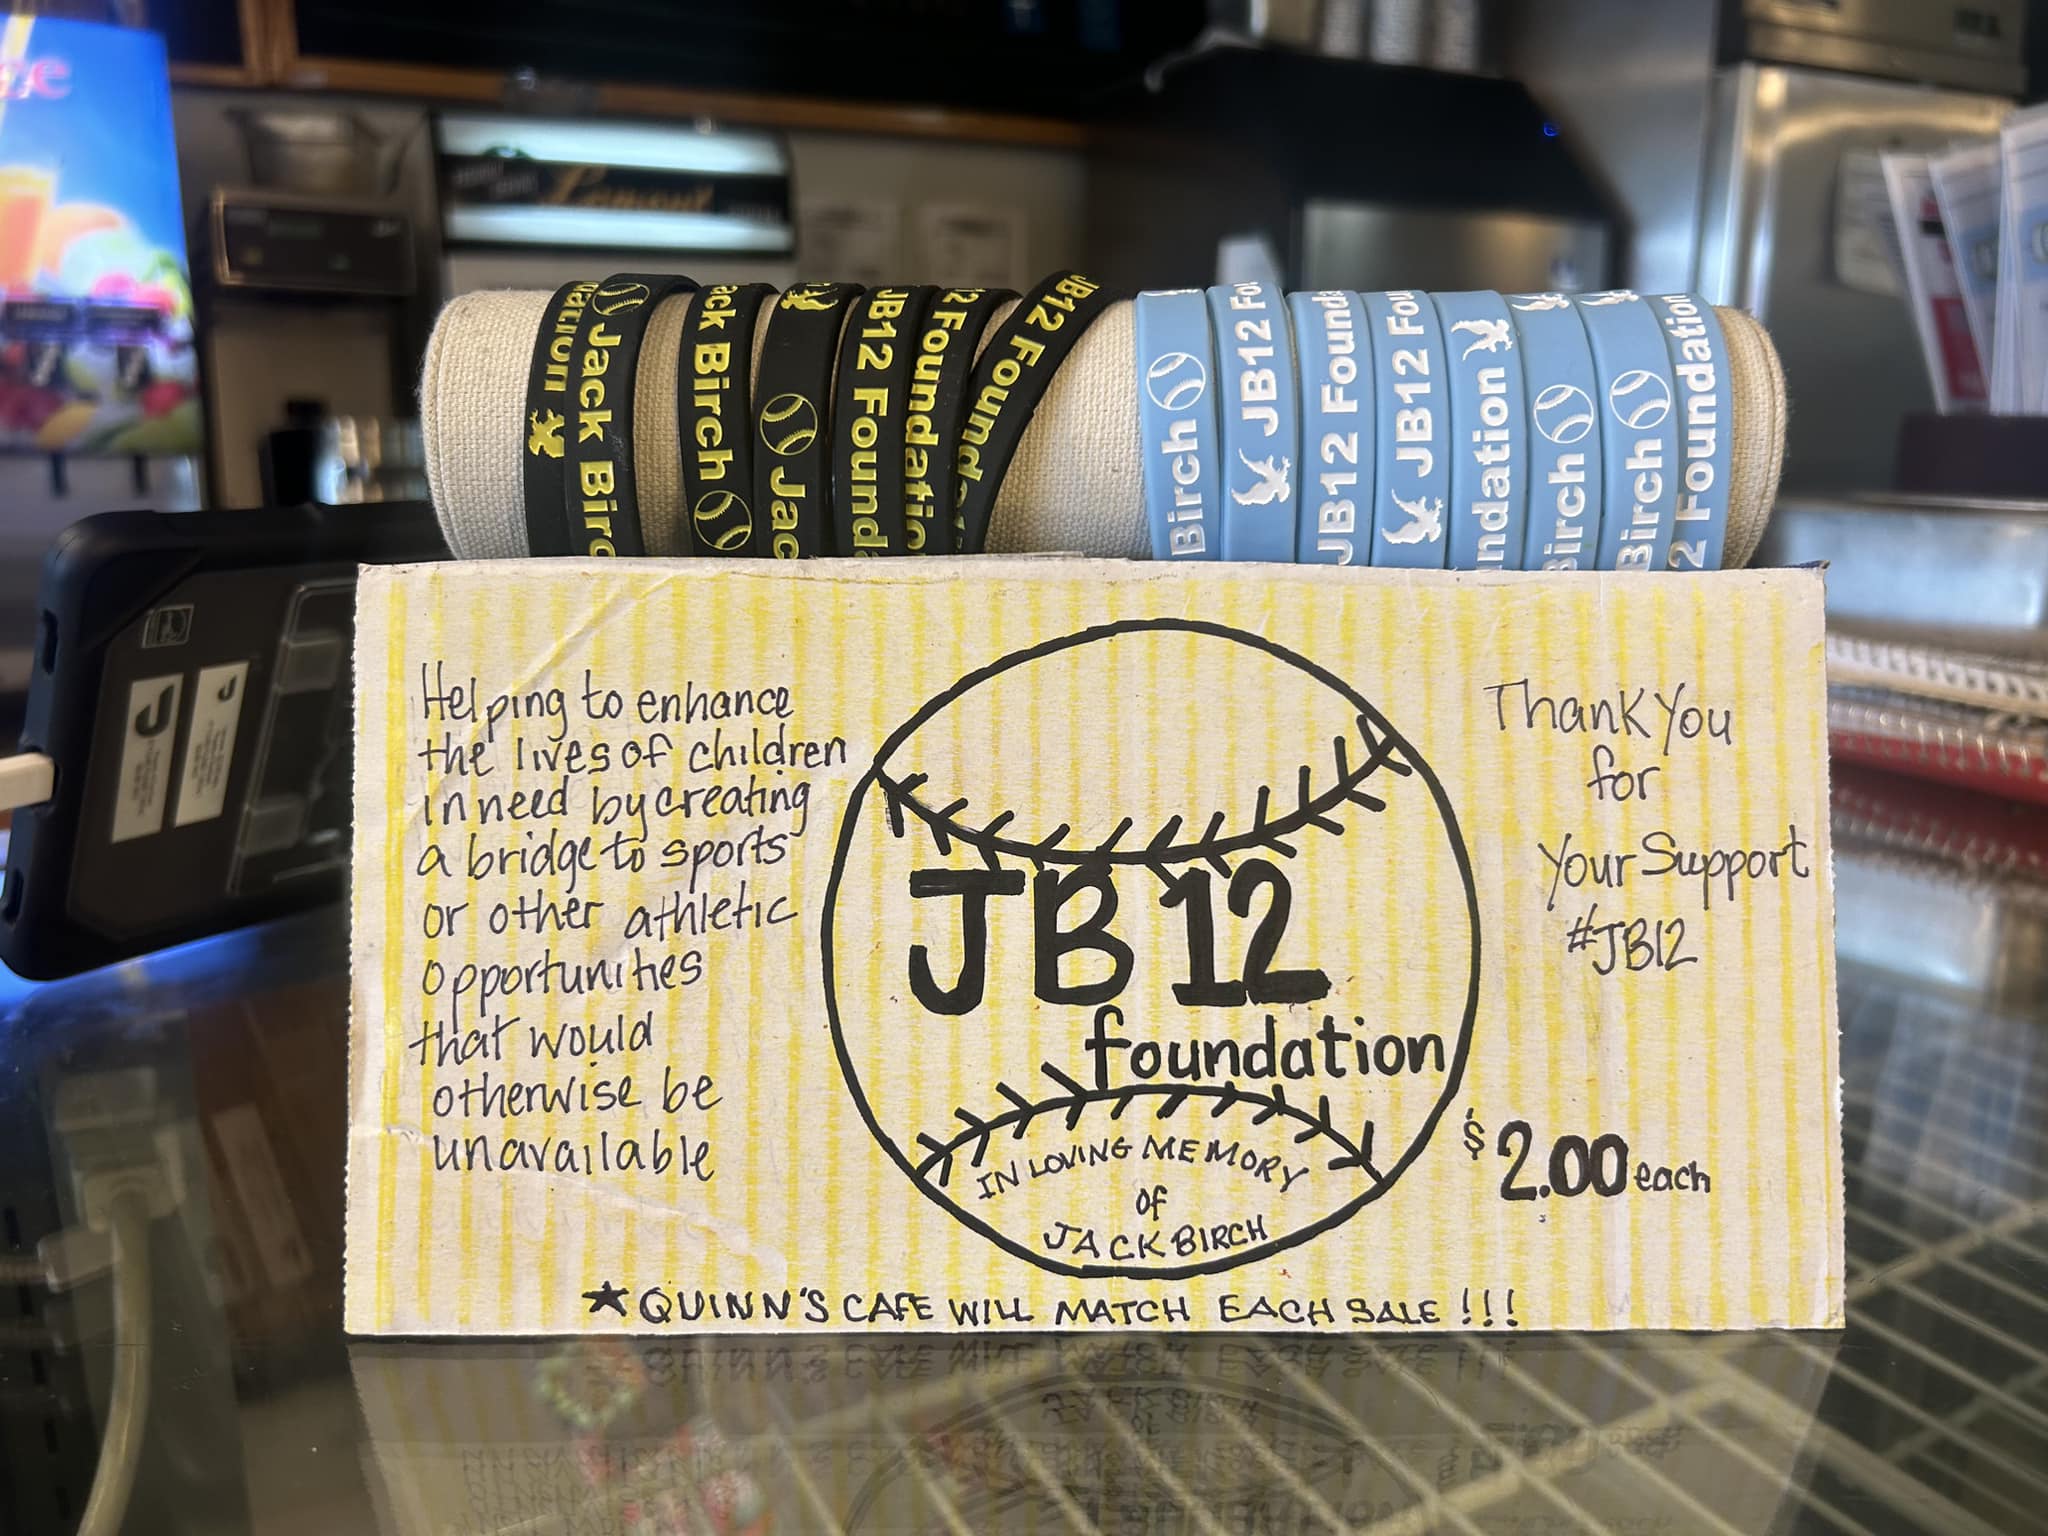 Lamour
dation
Jack Birc
ack Birch
Jac
JB12 Founda
12 Foundatio
JB12 Founda
Birch
JB12 Fou
JB12 Founda
JB12 Fou
ndation
Birch
Birch
2 Foundation
Helping to enhance
the lives of children
in need by creating
a bridge to sports
or other athletic
opportunities
that would
otherwise be
unavailable
JB12
foundation
IN LOVING MEMORY
of
JACK BIRCH
Thank You
for
Your Support
#JB12
$2.00 each
★QUINN'S CAFE WILL MATCH EACH SALE!!!